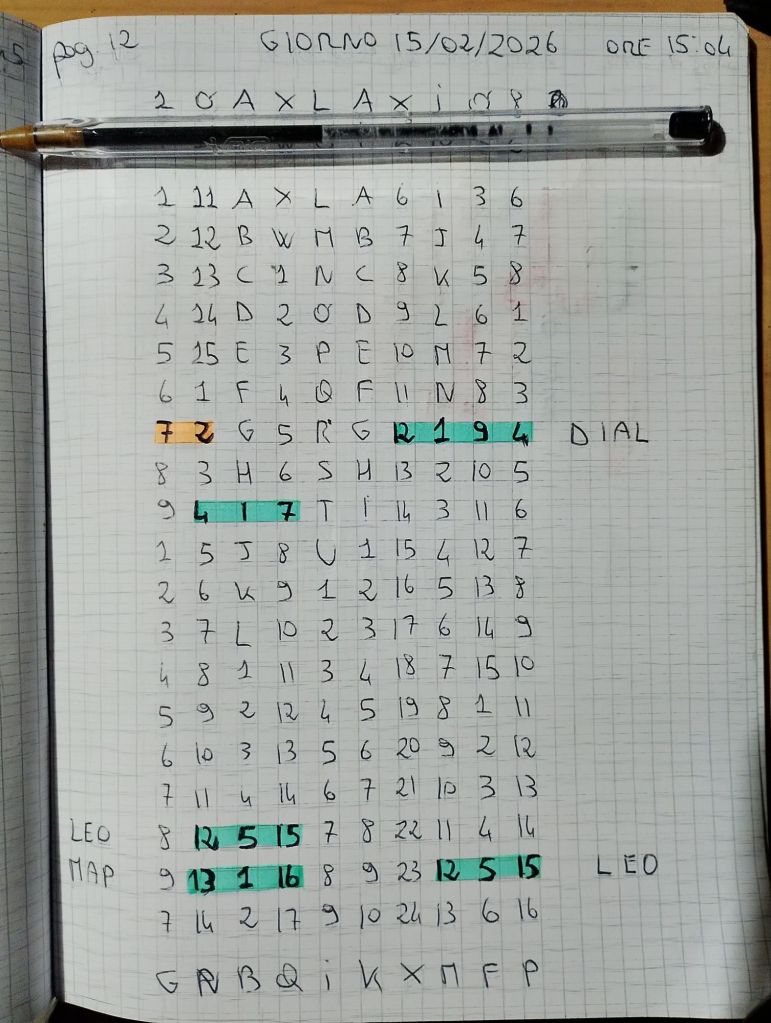 pag. 12 GIORNO 15/02/2026 ORE 15:04
1 O A X L A X i N 8
1 11 A X L A 6 I 3 6
2 12 B W M B 7 J 4 7
3 13 C 1 N C 8 K 5 8
4 14 D 2 O D 9 L 6 1
5 15 E 3 P E 10 M 7 2
6 1 F 4 Q F 11 N 8 3
7 2 G 5 R G 12 1 9 4 DIAL
8 3 H 6 S H 13 2 10 5
9 4 I 7 T I 14 3 11 6
1 5 J 8 U 1 15 4 12 7
2 6 K 9 1 2 16 5 13 8
3 7 L 10 2 3 17 6 14 9
4 8 1 11 3 4 18 7 15 10
5 9 2 12 4 5 19 8 1 11
6 10 3 13 5 6 20 9 2 12
7 11 4 14 6 7 21 10 3 13
LEO 8 12 5 15 7 8 22 11 4 14
MAP 9 13 1 16 8 9 23 12 5 15 LEO
7 14 2 17 9 10 24 13 6 16
G N B Q i K X M F P